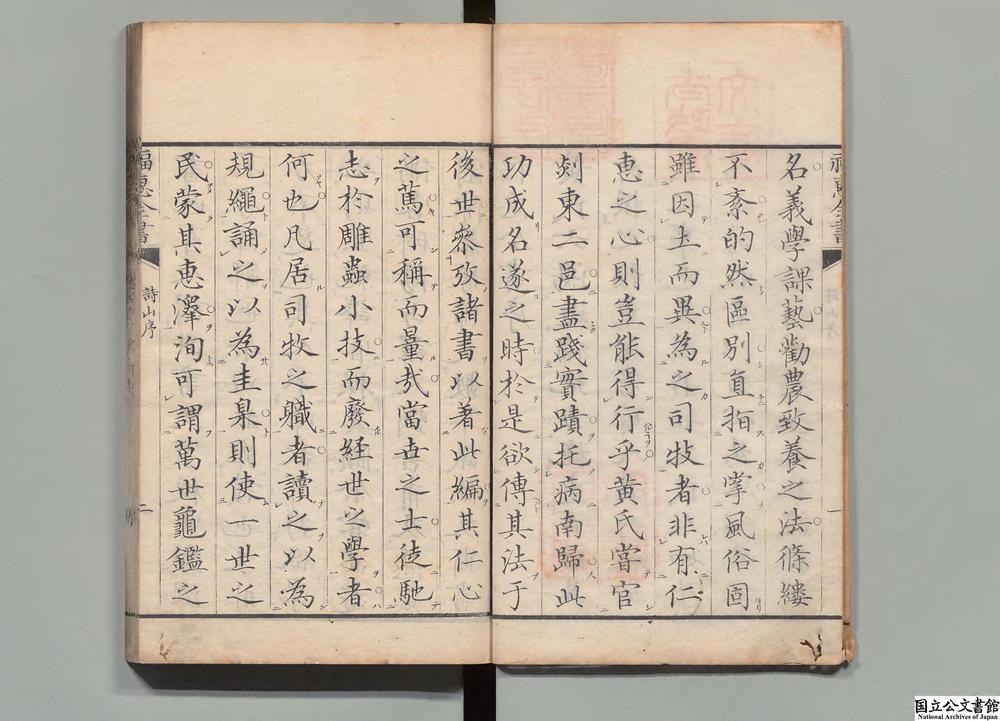 名義學課藝勸農致養之法條縷
不紊的然區別直指之掌風俗固
雖因土而異為之司牧者非有仁
惠之心則豈能得行乎黄氏嘗官
郯東二邑盡踐實蹟托病南歸此
功成名遂之時於是欲傳其法于
後世參攷諸書以著此編其仁心
之篤可稱而量哉當世之士徒馳
志於雕蟲小技而廢経世之學者
何也凡居司牧之職者讀之以為
規繩誦之以為圭臬則使一世之
民蒙其惠澤洵可謂萬世龜鑑之
福惠全書
詩山序
二
国立公文書館
National Archives of Japan